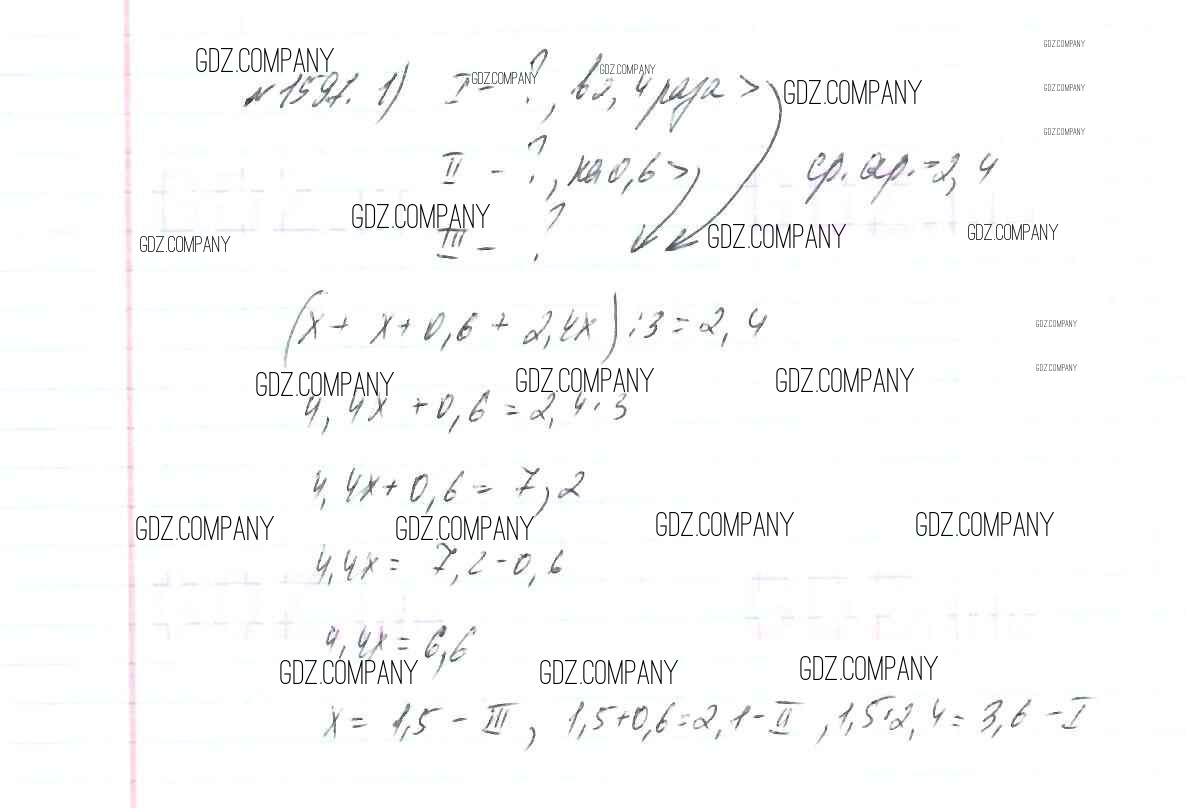 GDZ.COMPANY
GDZ.COMPANY
GDZ.COMPANY
GDZ.COMPANY
№ 1597. 1) I - ?, в 2,4 раза >
GDZ.COMPANY
GDZ.COMPANY
GDZ.COMPANY
II - ?, на 0,6 >, ср. ар. = 2,4
GDZ.COMPANY
III - ?
GDZ.COMPANY
GDZ.COMPANY
GDZ.COMPANY
(x + x + 0,6 + 2,4x) : 3 = 2,4
GDZ.COMPANY
GDZ.COMPANY
GDZ.COMPANY
GDZ.COMPANY
GDZ.COMPANY
4,4x + 0,6 = 2,4 · 3
4,4x + 0,6 = 7,2
GDZ.COMPANY
GDZ.COMPANY
GDZ.COMPANY
GDZ.COMPANY
4,4x = 7,2 - 0,6
4,4x = 6,6
GDZ.COMPANY
GDZ.COMPANY
GDZ.COMPANY
x = 1,5 - III, 1,5 + 0,6 = 2,1 - II, 1,5 · 2,4 = 3,6 - I